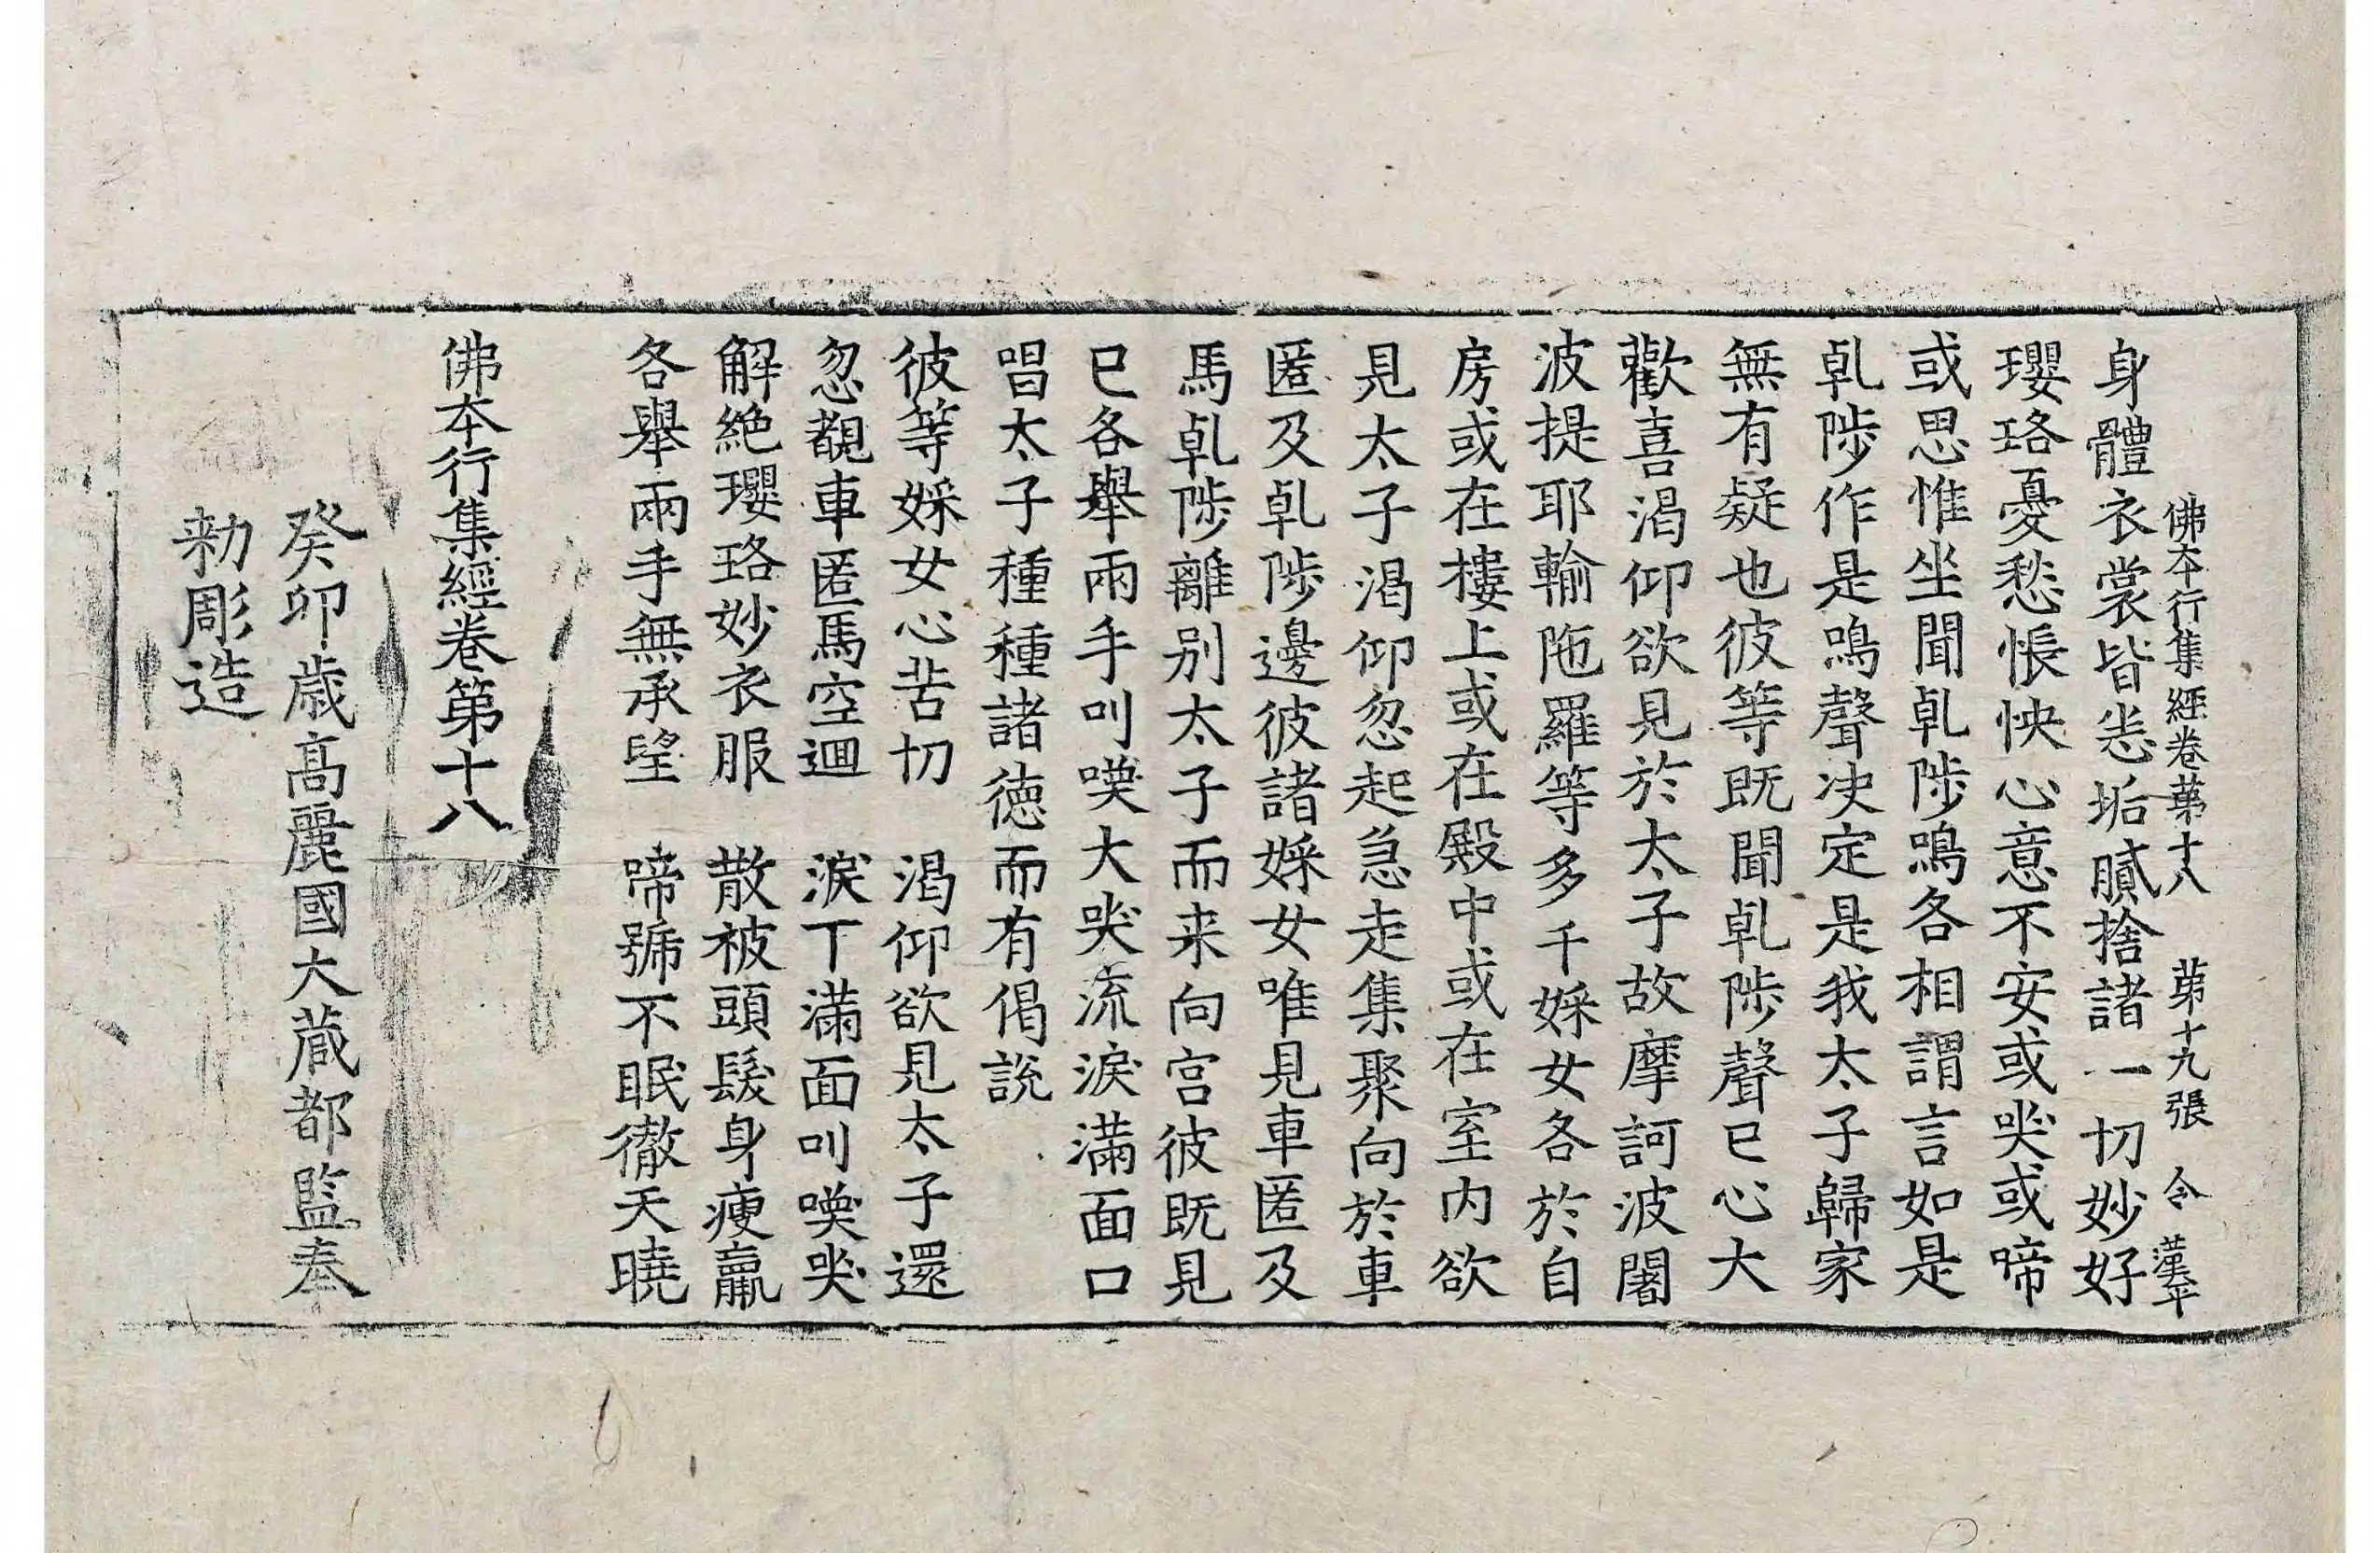 佛本行集經卷第十八 第十九張 令 漢平
身體衣裳皆悉垢膩捨諸一切妙好
瓔珞憂愁悵怏心意不安或哭或啼
或思惟坐聞乹陟鳴各相謂言如是
乹陟作是鳴聲决定是我太子歸家
無有疑也彼等既聞乹陟聲已心大
歡喜渴仰欲見於太子故摩訶波闍
波提耶輸陁羅等多千婇女各於自
房或在樓上或在殿中或在室內欲
見太子渴仰忽起急走集聚向於車
匿及乹陟邊彼諸婇女唯見車匿及
馬乹陟離別太子而来向宮彼既見
已各舉兩手叫喚大哭流淚滿面口
唱太子種種諸德而有偈說
彼等婇女心苦切 渴仰欲見太子還
忽覩車匿馬空迴 淚下滿面叫喚哭
解絕瓔珞妙衣服 散被頭髮身瘦羸
各舉兩手無承望 啼號不眠徹天曉
佛本行集經卷第十八
癸卯歲高麗國大藏都監奉
勅彫造